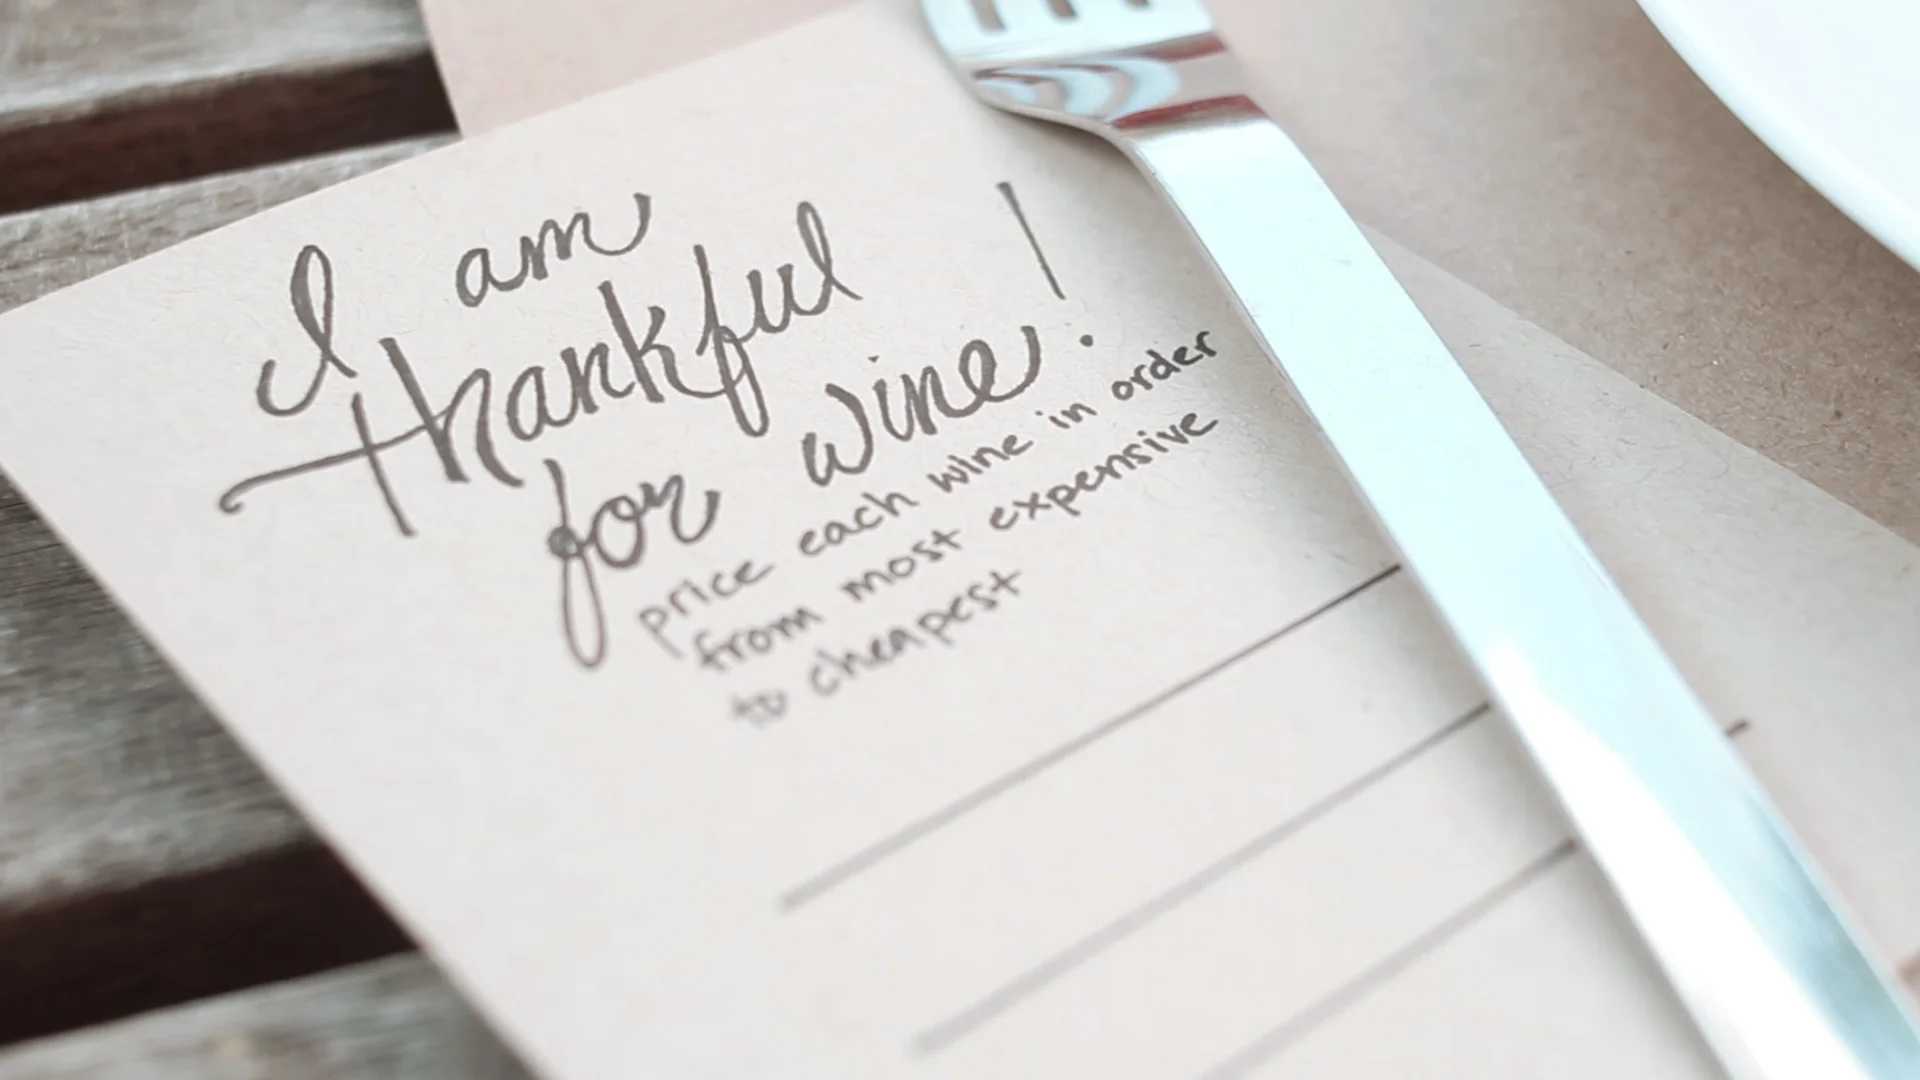 I am
thankful
for wine!
price each wine in order
from most expensive
to cheapest